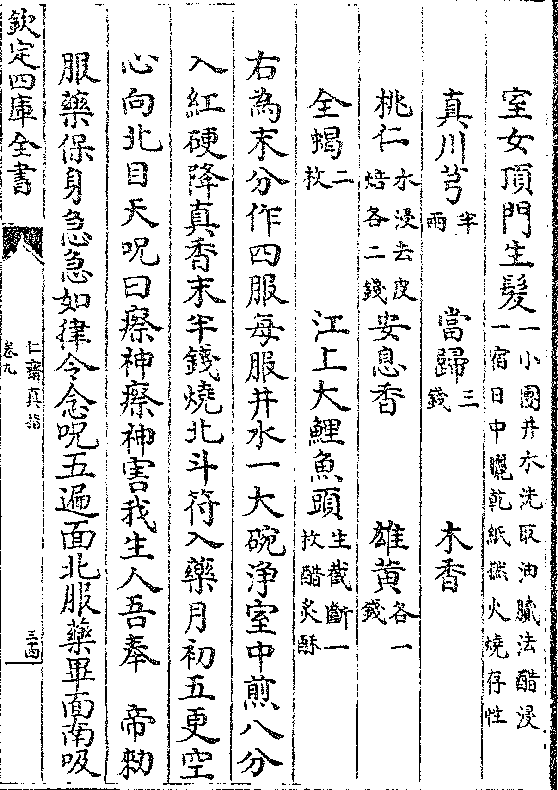 室女頂門生髮一小團井水洗取油膩法醋浸一宿日中曬乾紙撚火燒存性
真川芎半兩　當歸三錢　木香
桃仁水浸去皮焙各二錢　安息香　雄黄各一錢
全蝎二枚　江上大鯉魚頭生截斷一枚醋炙酥
右為末分作四服每服井水一大碗浄室中煎八分
入紅硬降真香末半錢燒北斗符入藥月初五更空
心向北目天呪曰瘵神瘵神害我生人吾奉　帝勑
服藥保身急急如律令念呪五遍面北服藥畢面南吸
欽定四庫全書
仁齋直指
卷九
三十四